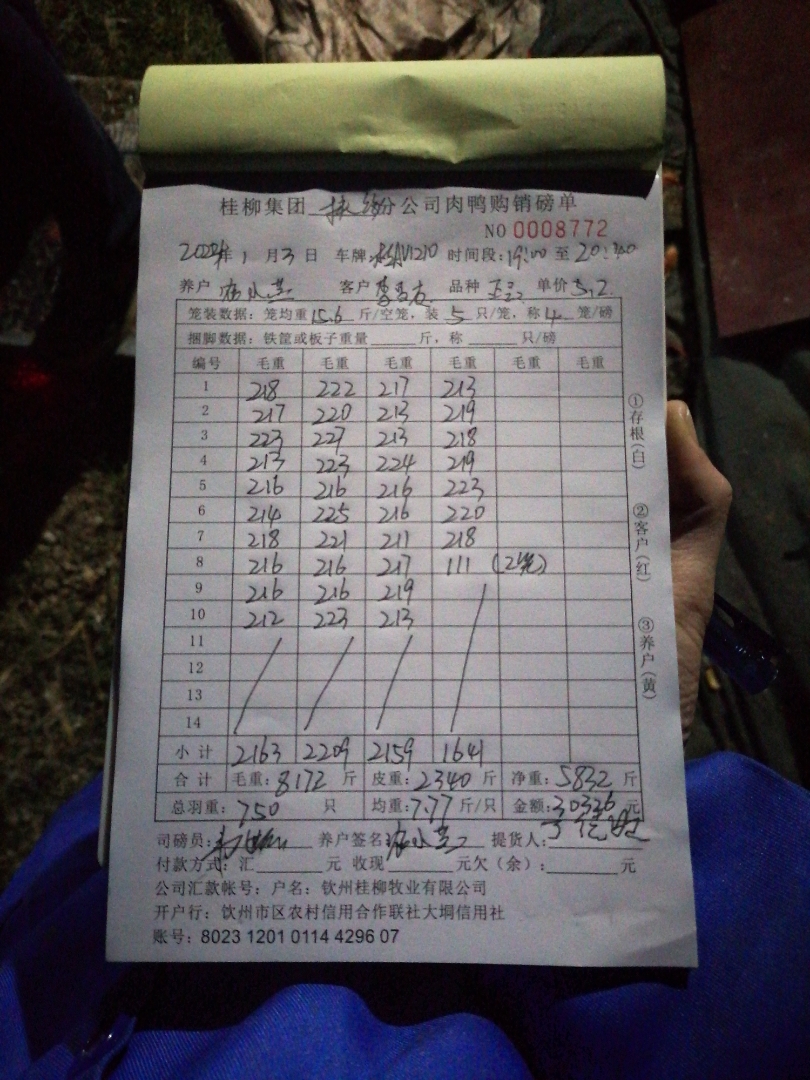 桂柳集团 分公司肉鸭购销磅单
NO 0008772
年 1 月 3 日 车牌: 时间段: 19:00 至 20:40
养户 客户 品种 单价 5.2
笼装数据: 笼均重 15.6 斤/空笼, 装 5 只/笼, 称 4 笼/磅
捆脚数据: 铁筐或板子重量 斤, 称 只/磅
编号 毛重 毛重 毛重 毛重 毛重 毛重
1 218 222 217 213
2 217 220 213 219
3 223 227 213 218
4 213 223 224 219
5 216 216 216 223
6 214 225 216 220
7 218 221 211 218
8 216 216 217 111 (2笼)
9 216 216 219
10 212 223 213
11
12
13
14
小计 2163 2209 2159 1641
合计 毛重: 8172 斤 皮重: 2340 斤 净重: 5832 斤
总羽重: 750 只 均重: 7.77 斤/只 金额: 30326 元
司磅员: 养户签名: 提货人:
付款方式: 汇 元 收现 元欠(余): 元
公司汇款帐号: 户名: 钦州桂柳牧业有限公司
开户行: 钦州市区农村信用合作联社大垌信用社
账号: 8023 1201 0114 4296 07
①存根(白)
②客户(红)
③养户(黄)